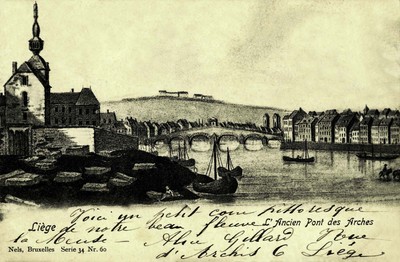 Liège
L'Ancien Pont des Arches
Voici un petit coin pittoresque
de notre beau fleuve
la Meuse - Alice Gillard Rue
d'Archis 6 Liège
Nels, Bruxelles Serie 34 Nr. 60